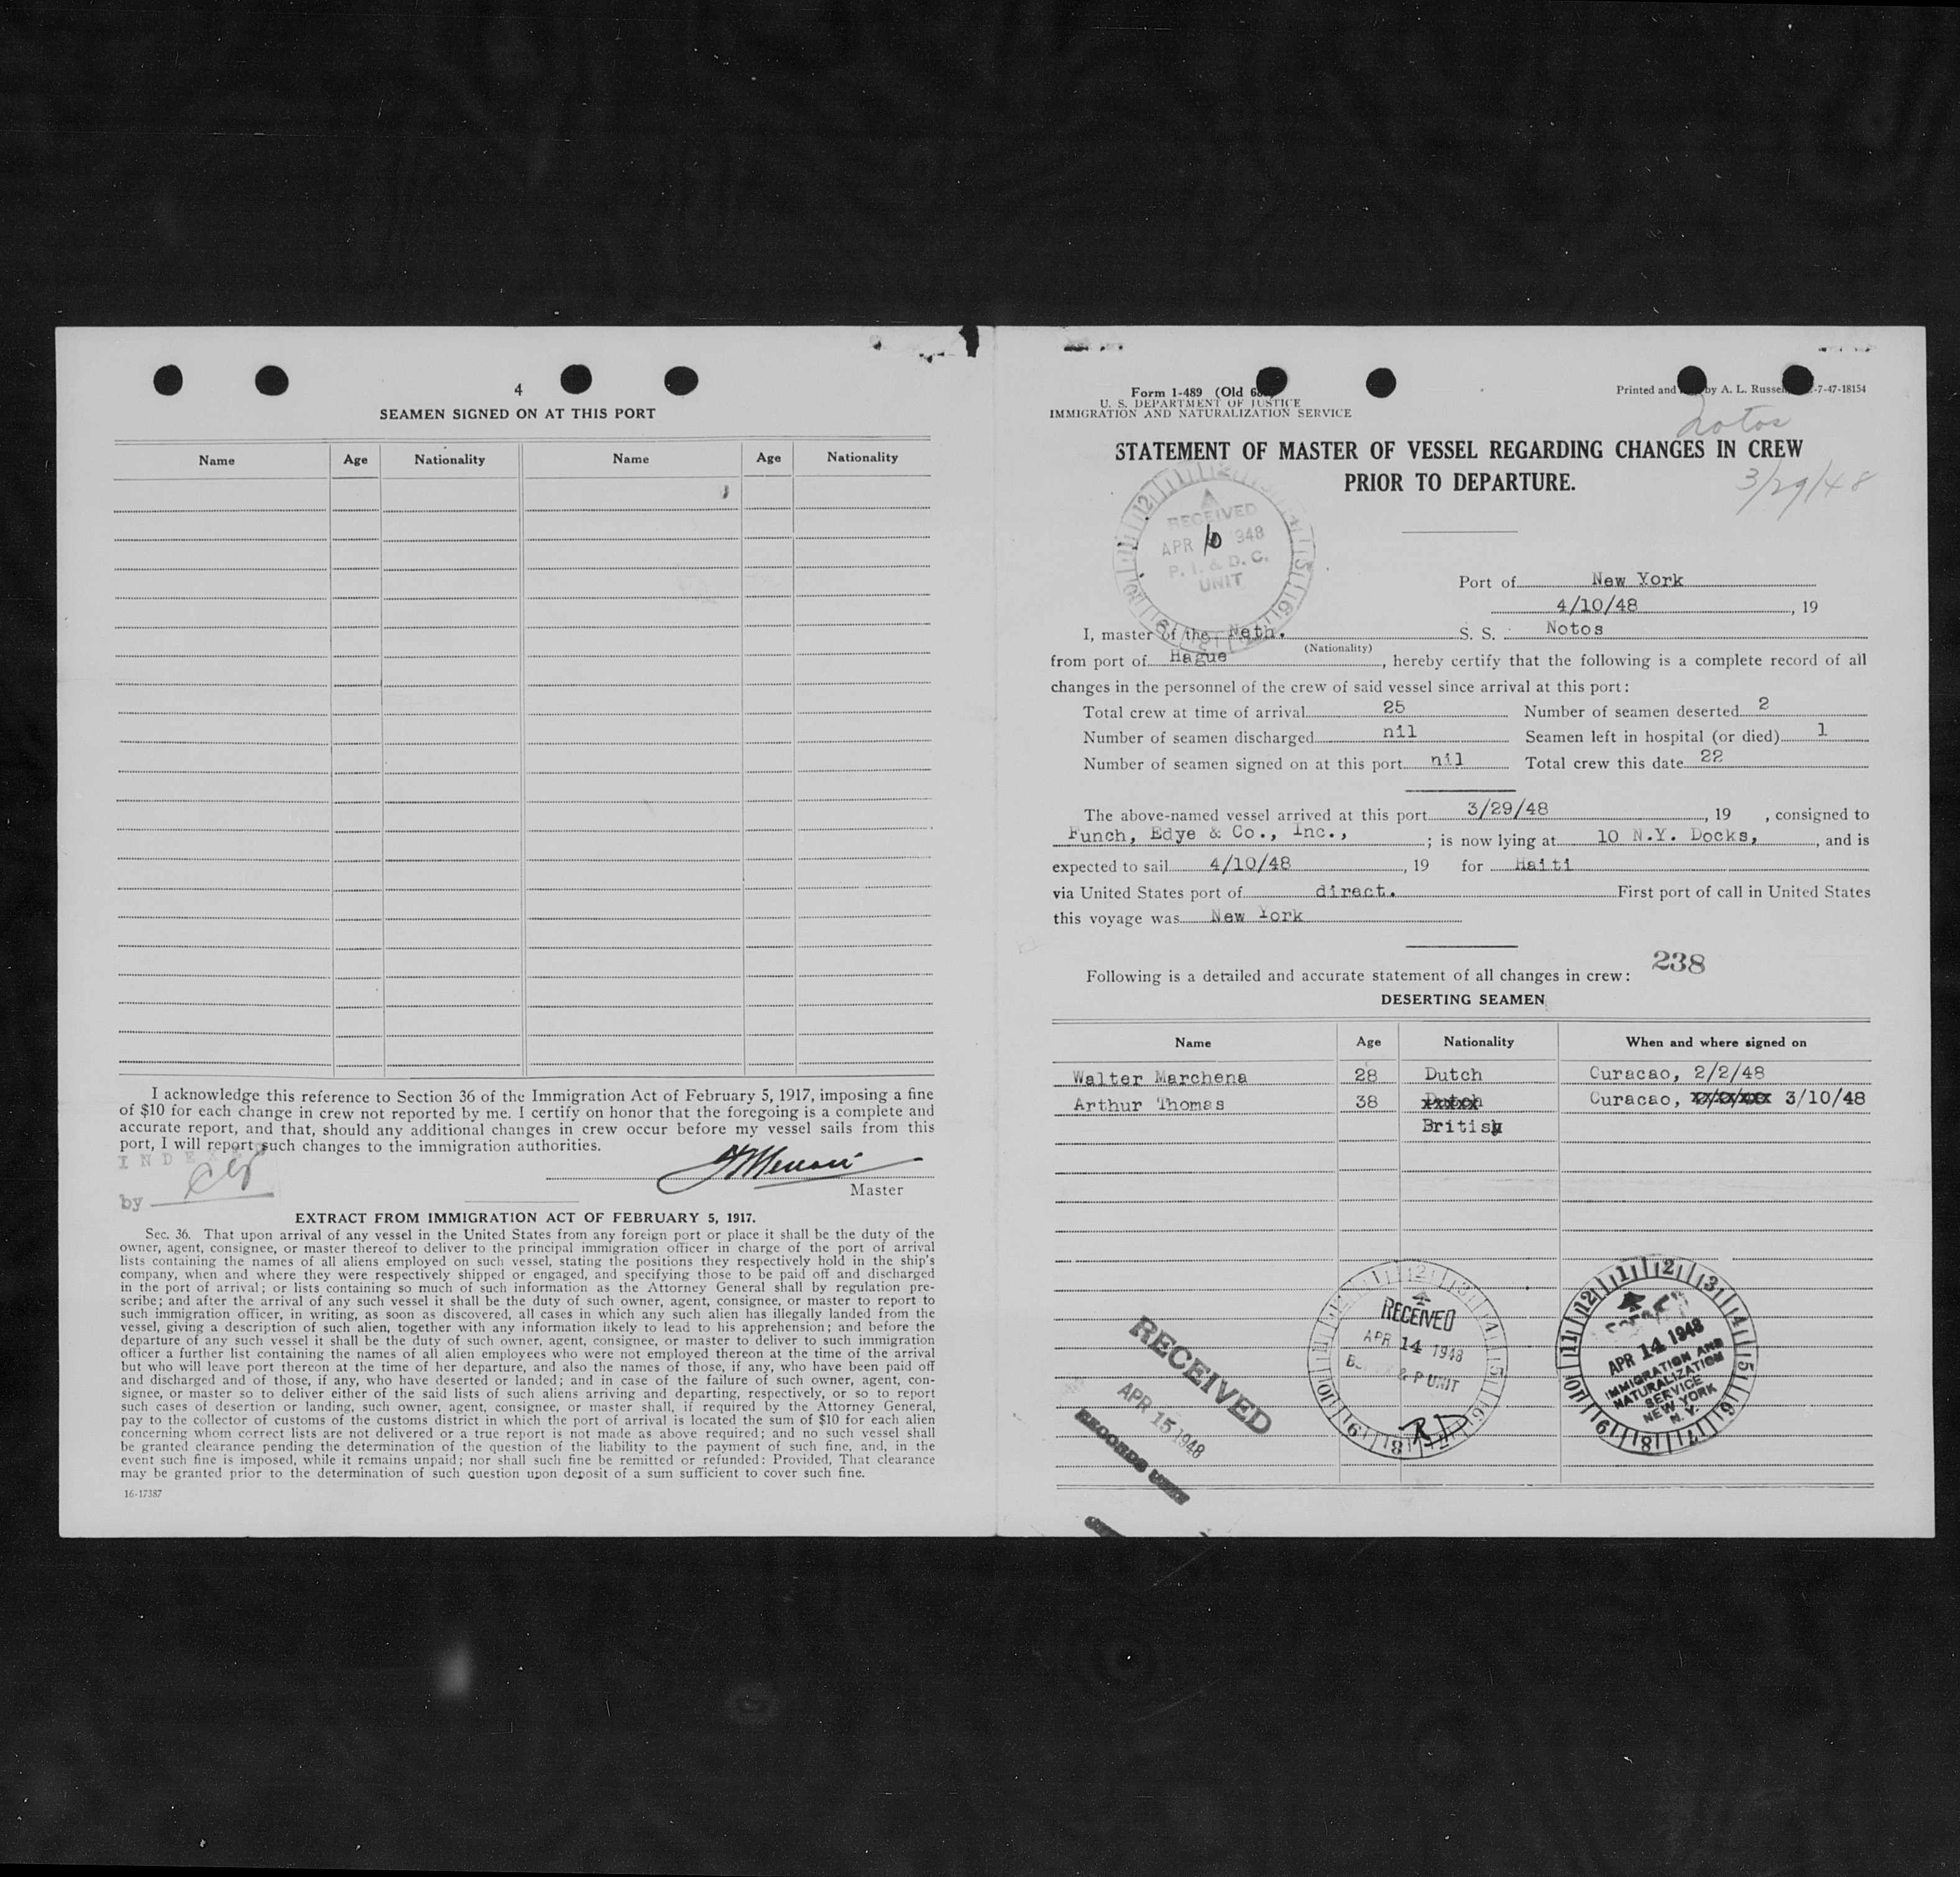 4
SEAMEN SIGNED ON AT THIS PORT
Name Age Nationality Name Age Nationality
I acknowledge this reference to Section 36 of the Immigration Act of February 5, 1917, imposing a fine
of $10 for each change in crew not reported by me. I certify on honor that the foregoing is a complete and
accurate report, and that, should any additional changes in crew occur before my vessel sails from this
port, I will report such changes to the immigration authorities.
by
Master
EXTRACT FROM IMMIGRATION ACT OF FEBRUARY 5, 1917.
Sec. 36. That upon arrival of any vessel in the United States from any foreign port or place it shall be the duty of the
owner, agent, consignee, or master thereof to deliver to the principal immigration officer in charge of the port of arrival
lists containing the names of all aliens employed on such vessel, stating the positions they respectively hold in the ship's
company, when and where they were respectively shipped or engaged, and specifying those to be paid off and discharged
in the port of arrival; or lists containing so much of such information as the Attorney General shall by regulation pre-
scribe; and after the arrival of any such vessel it shall be the duty of such owner, agent, consignee, or master to report to
such immigration officer, in writing, as soon as discovered, all cases in which any such alien has illegally landed from the
vessel, giving a description of such alien, together with any information likely to lead to his apprehension; and before the
departure of any such vessel it shall be the duty of such owner, agent, consignee, or master to deliver to such immigration
officer a further list containing the names of all alien employees who were not employed thereon at the time of the arrival
but who will leave port thereon at the time of her departure, and also the names of those, if any, who have been paid off
and discharged and of those, if any, who have deserted or landed; and in case of the failure of such owner, agent, con-
signee, or master so to deliver either of the said lists of such aliens arriving and departing, respectively, or so to report
such cases of desertion or landing, such owner, agent, consignee, or master shall, if required by the Attorney General,
pay to the collector of customs of the customs district in which the port of arrival is located the sum of $10 for each alien
concerning whom correct lists are not delivered or a true report is not made as above required; and no such vessel shall
be granted clearance pending the determination of the question of the liability to the payment of such fine, and, in the
event such fine is imposed, while it remains unpaid; nor shall such fine be remitted or refunded: Provided, That clearance
may be granted prior to the determination of such question upon deposit of a sum sufficient to cover such fine.
16-17387
Form 1-489 (Old
U. S. DEPARTMENT OF JUSTICE
IMMIGRATION AND NATURALIZATION SERVICE
Printed and by A. L. Russell -7-47-18154
Notos
STATEMENT OF MASTER OF VESSEL REGARDING CHANGES IN CREW
PRIOR TO DEPARTURE.
3/29/48
RECEIVED
APR 10 948
P. I. & D. C.
UNIT
Port of New York
4/10/48, 19
I, master of the Neth. S. S. Notos
(Nationality)
from port of Hague, hereby certify that the following is a complete record of all
changes in the personnel of the crew of said vessel since arrival at this port:
Total crew at time of arrival 25 Number of seamen deserted 2
Number of seamen discharged nil Seamen left in hospital (or died) 1
Number of seamen signed on at this port nil Total crew this date 22
The above-named vessel arrived at this port 3/29/48, 19 , consigned to
Funch, Edye & Co., Inc., ; is now lying at 10 N.Y. Docks, , and is
expected to sail 4/10/48, 19 for Haiti
via United States port of direct. First port of call in United States
this voyage was New York
238
Following is a detailed and accurate statement of all changes in crew:
DESERTING SEAMEN
Name Age Nationality When and where signed on
Walter Marchena 28 Dutch Curacao, 2/2/48
Arthur Thomas 38 Curacao, 3/10/48
British
RECEIVED
APR 15 1948
RECORDS UNIT
RECEIVED
APR 14 1948
& P UNIT
RD
APR 14 1948
IMMIGRATION AND
NATURALIZATION
SERVICE
NEW YORK
N. Y.